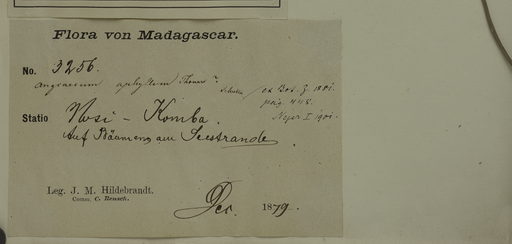 Flora von Madagascar.
No. 3256.
Angraecum aphyllum Thouars
ex Bot. Z. 1881.
pag. 448.
Statio Nosi - Komba.
Auf Bäumen am Seestrande
Leg. J. M. Hildebrandt.
Comm. C. Rensch.
Dec. 1879.